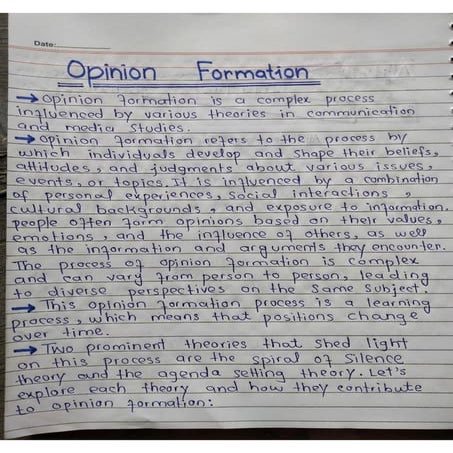 Date:
Opinion Formation
→ Opinion formation is a complex process
influenced by various theories in communication
and media studies.
→ Opinion formation refers to the process by
which individuals develop and shape their beliefs,
attitudes, and judgments about various issues,
events, or topics. It is influenced by a combination
of personal experiences, social interactions,
cultural backgrounds, and exposure to information.
people often form opinions based on their values,
emotions, and the influence of others, as well
as the information and arguments they encounter.
The process of opinion formation is complex
and can vary from person to person, leading
to diverse perspectives on the same subject.
→ This opinion formation process is a learning
process, which means that positions change
over time.
→ Two prominent theories that shed light
on this process are the spiral of Silence
theory and the agenda setting theory. Let's
explore each theory and how they contribute
to opinion formation: